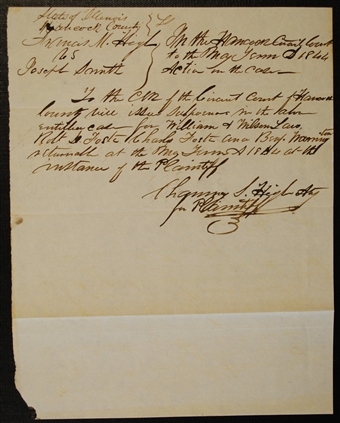 State of Illinois
Hancock County } ss
Thomas H.
vs
Joseph Smith
In the Hancock Circuit Court
to the May Term AD 1844
Action on the case
To the Clk of the Circuit Court of Hancock
County will issue subpoenas in the above
entitled case for William & Wilson Law
Robt D Foster Charles Foster and Benj Warrington
returnable at the May Term AD 1844 at the
instance of the Plaintiff
Chauncy L. Higbee Atty
for Plaintiff